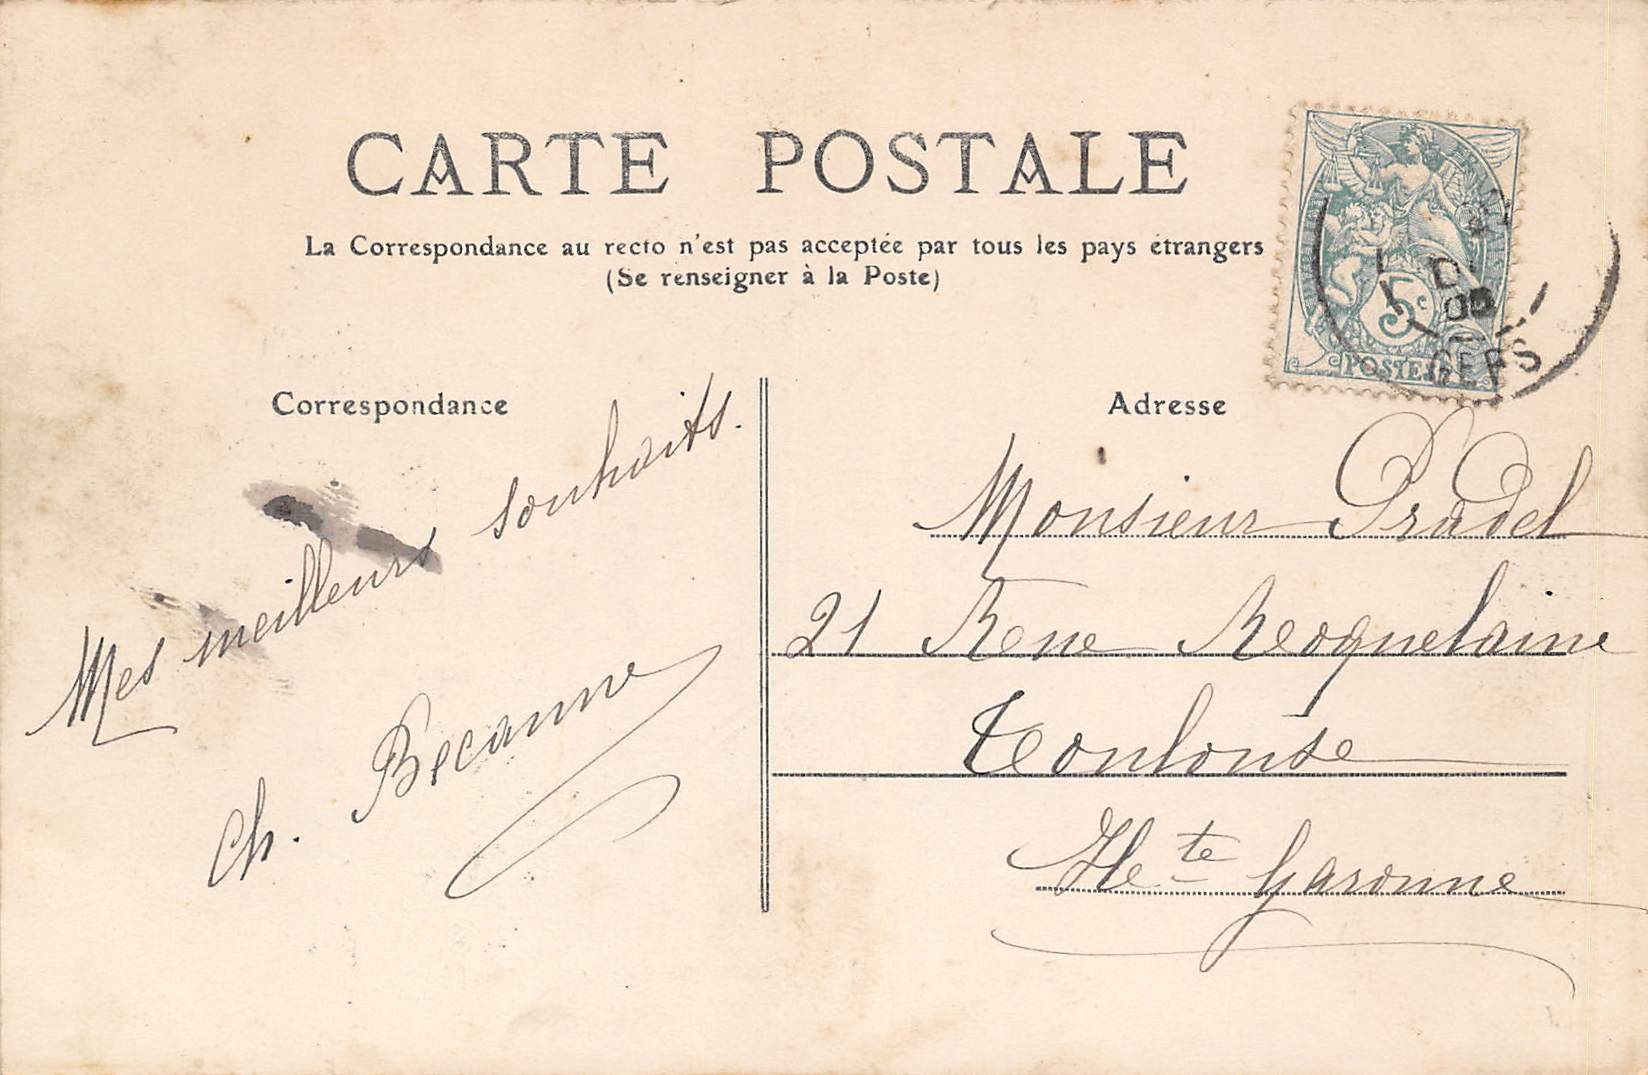 CARTE POSTALE
La Correspondance au recto n'est pas acceptée par tous les pays étrangers
(Se renseigner à la Poste)
Correspondance
Mes meilleurs souhaits.
Ch. Becanne
Adresse
5c
POSTES
GERS
Monsieur Pradel
21 Rue Roquelaine
Toulouse
Hte Garonne